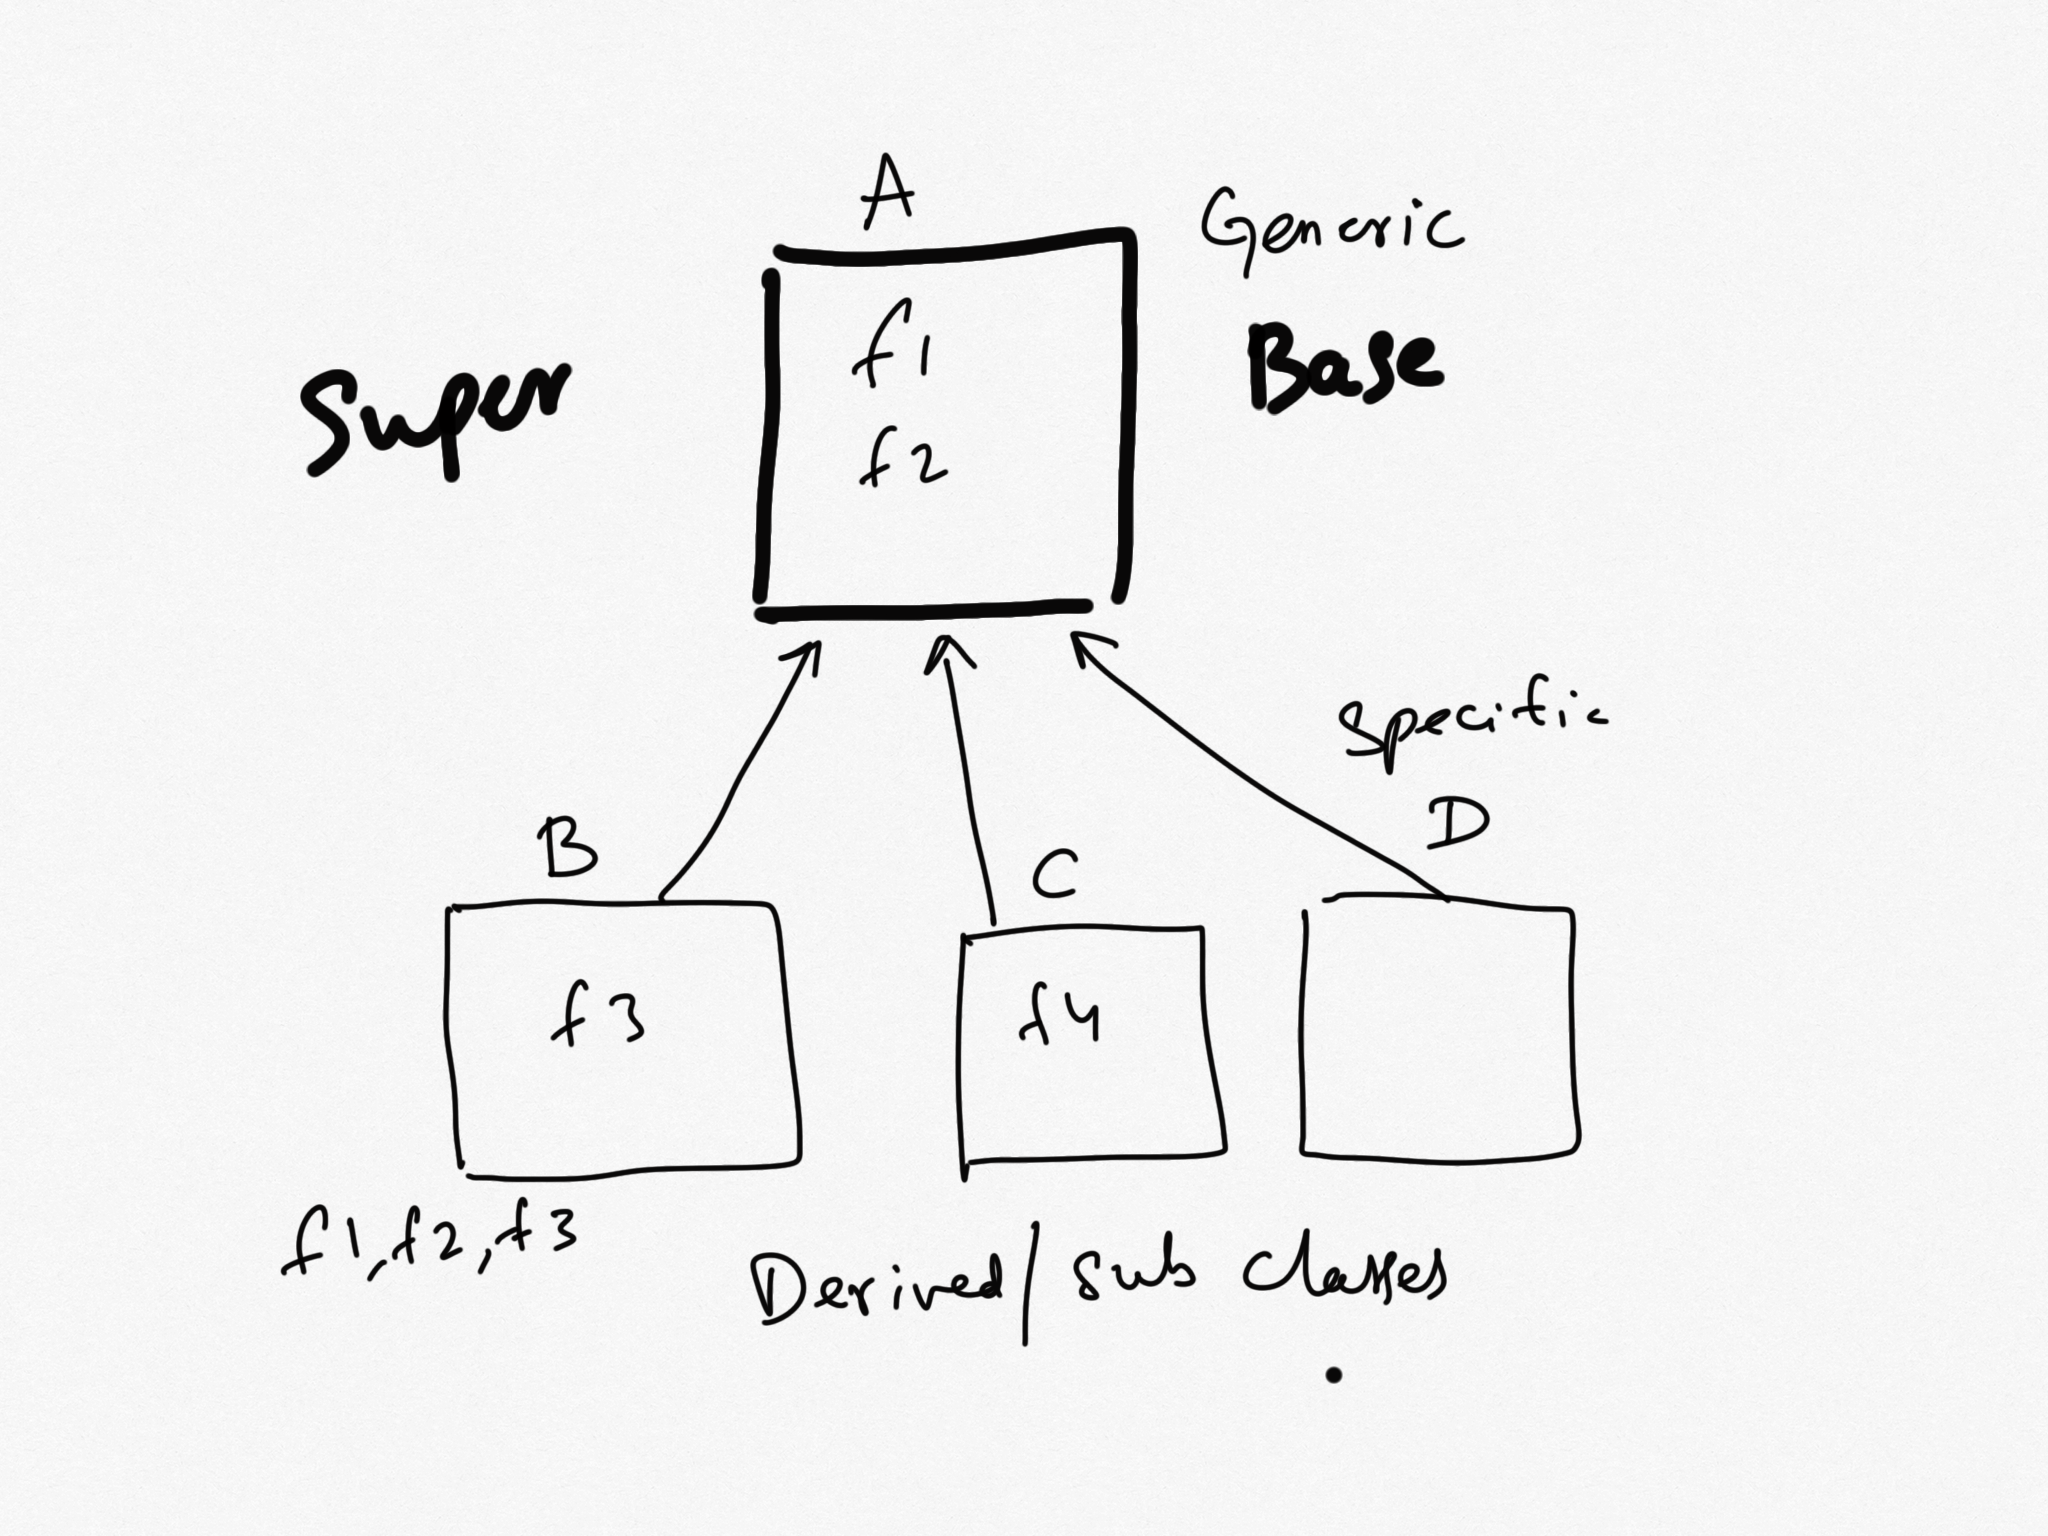 A
Generic
f1
Super
Base
f2
Specific
B
C
D
f3
f4
f1,f2,f3
Derived/sub classes